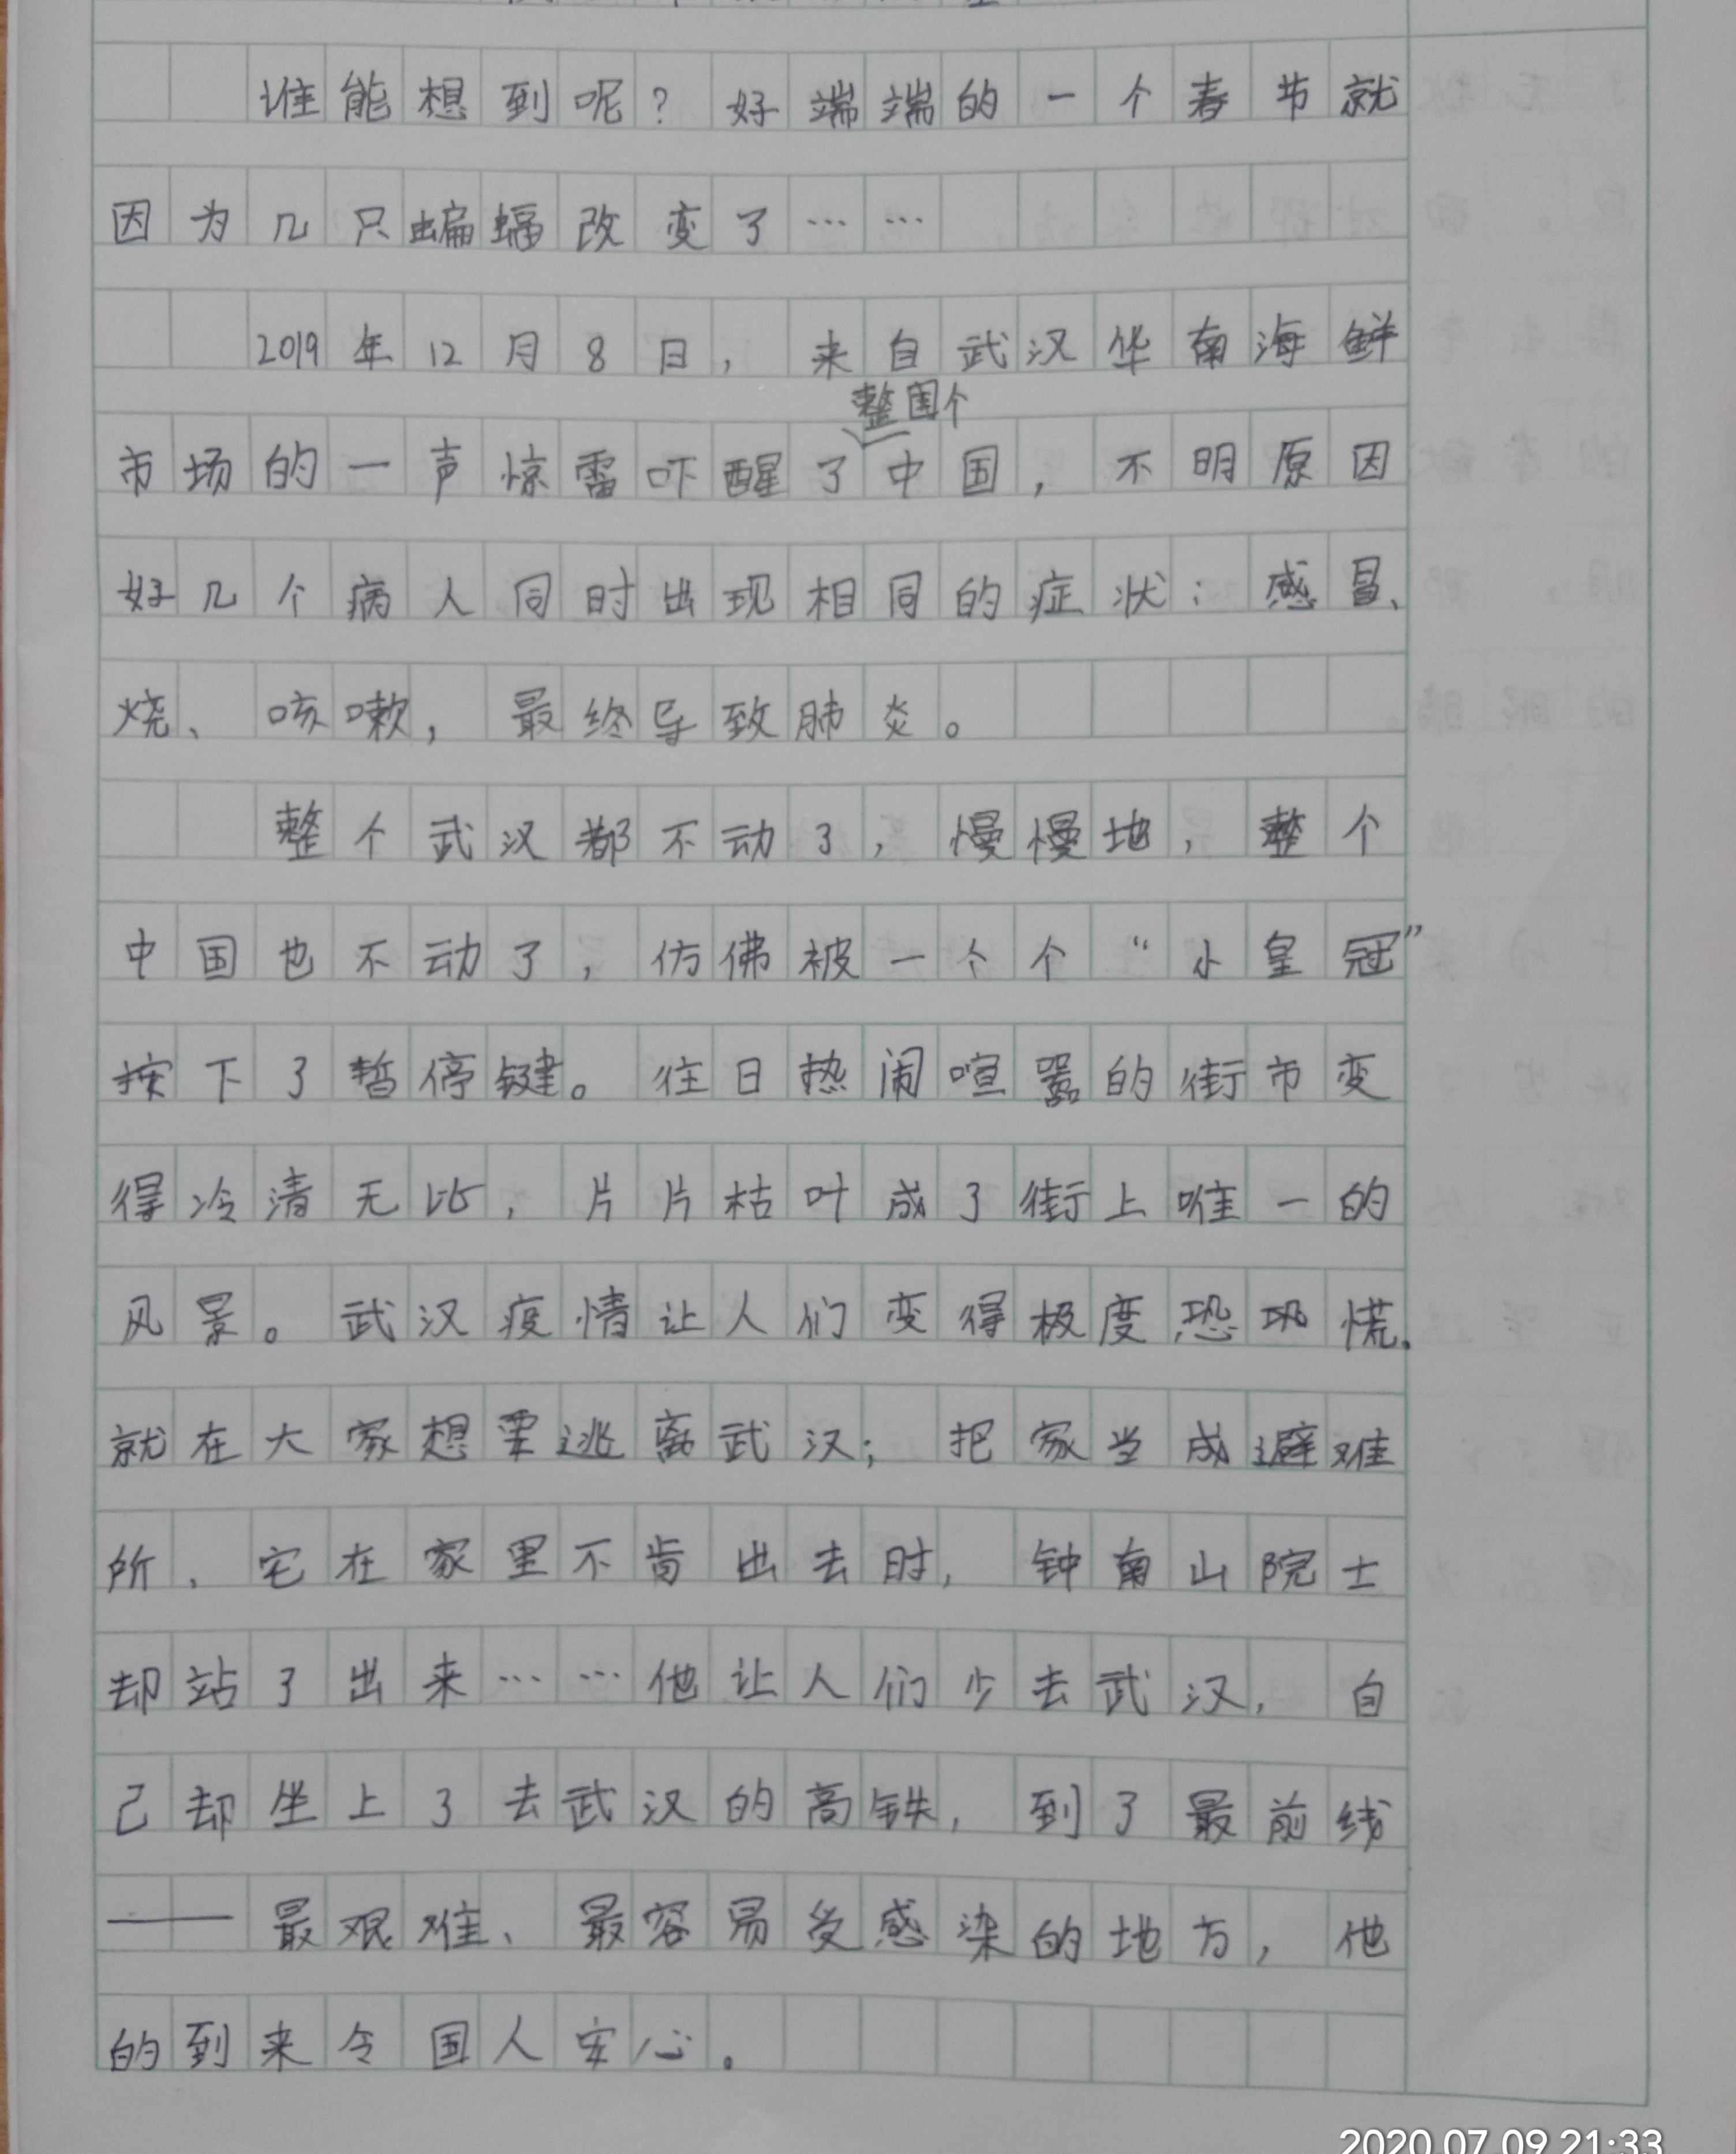 谁能想到呢？好端端的一个春节就
因为几只蝙蝠改变了……
2019年12月8日，来自武汉华南海鲜
整国个
市场的一声惊雷吓醒了中国，不明原因
好几个病人同时出现相同的症状：感冒、
烧、咳嗽，最终导致肺炎。
整个武汉都不动了，慢慢地，整个
中国也不动了，仿佛被一个个“小皇冠”
按下了暂停键。往日热闹喧嚣的街市变
得冷清无比，片片枯叶成了街上唯一的
风景。武汉疫情让人们变得极度恐巩慌。
就在大家想要逃离武汉；把家当成避难
所、宅在家里不肯出去时，钟南山院士
却站了出来……他让人们少去武汉，自
己却坐上了去武汉的高铁，到了最前线
——最艰难、最容易受感染的地方，他
的到来令国人安心。
2020.07.09 21:33